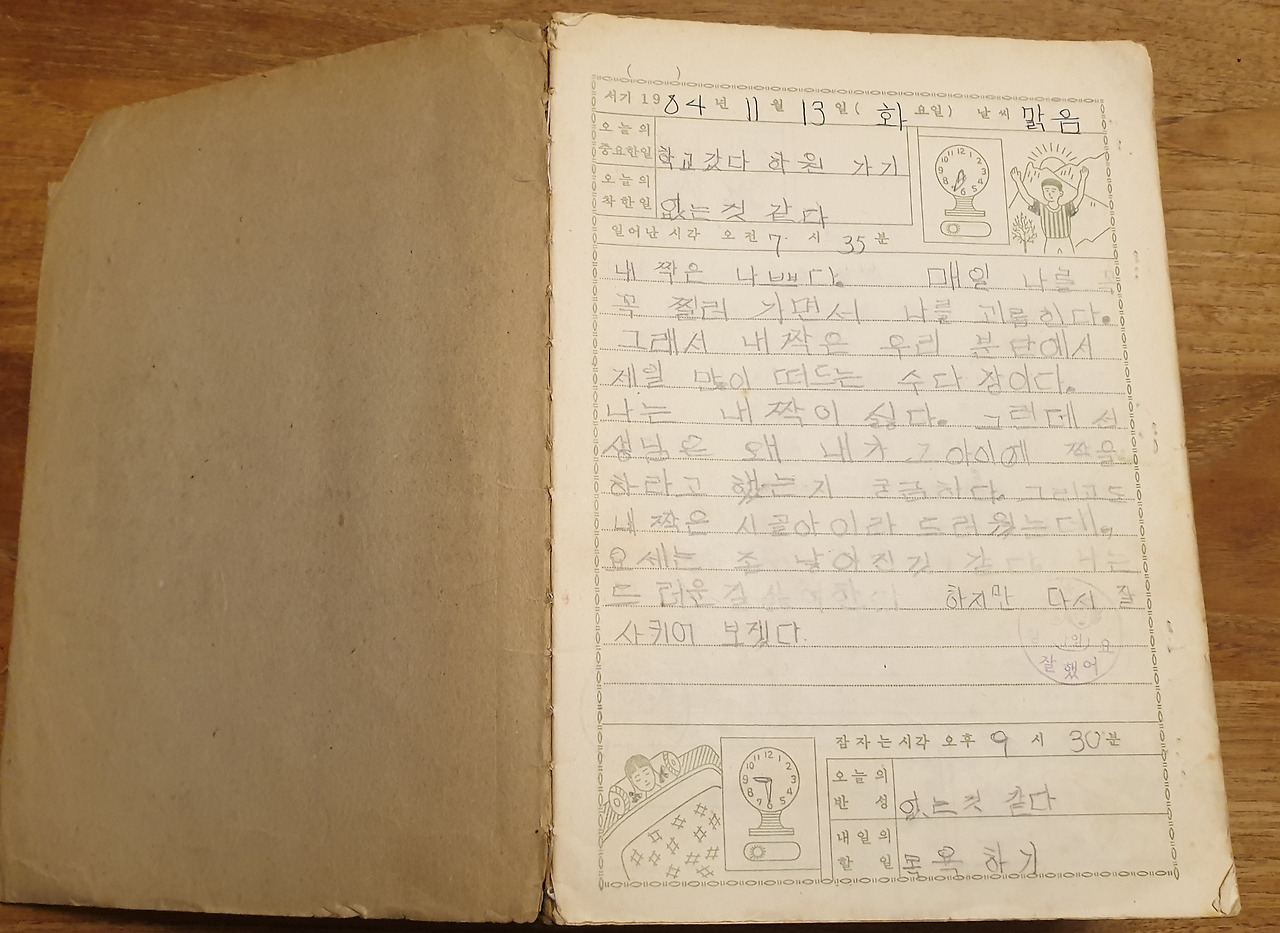 ( )
서기 1984년 11월 13일(화요일) 날씨 맑음
오늘의 중요한일 학교갔다 학원 가기
오늘의 착한일 없는것 같다
일어난 시각 오전 7시 35분
내 짝은 나쁘다. 매일 나를 쿡
꼭 찔러 가면서 나를 괴롭힌다.
그래서 내 짝은 우리 분단에서
제일 많이 떠드는 수다 장이다.
나는 내 짝이 싫다. 그런데 선
생님은 왜 내가 그 아이에 짝을
하라고 했는지 궁금하다. 그리고 또
내 짝은 시골아이라 드러웠는데,
요세는 존 낳아진것 같다 나는
드러운 하지만 다시 잘
사키어 보겠다.
잘했어요
12 1 2 3 4 5 6 7 8 9 10 11
잠자는시각 오후 9시 30분
오늘의 반성 없는것 같다
내일의 할일 목욕 하기